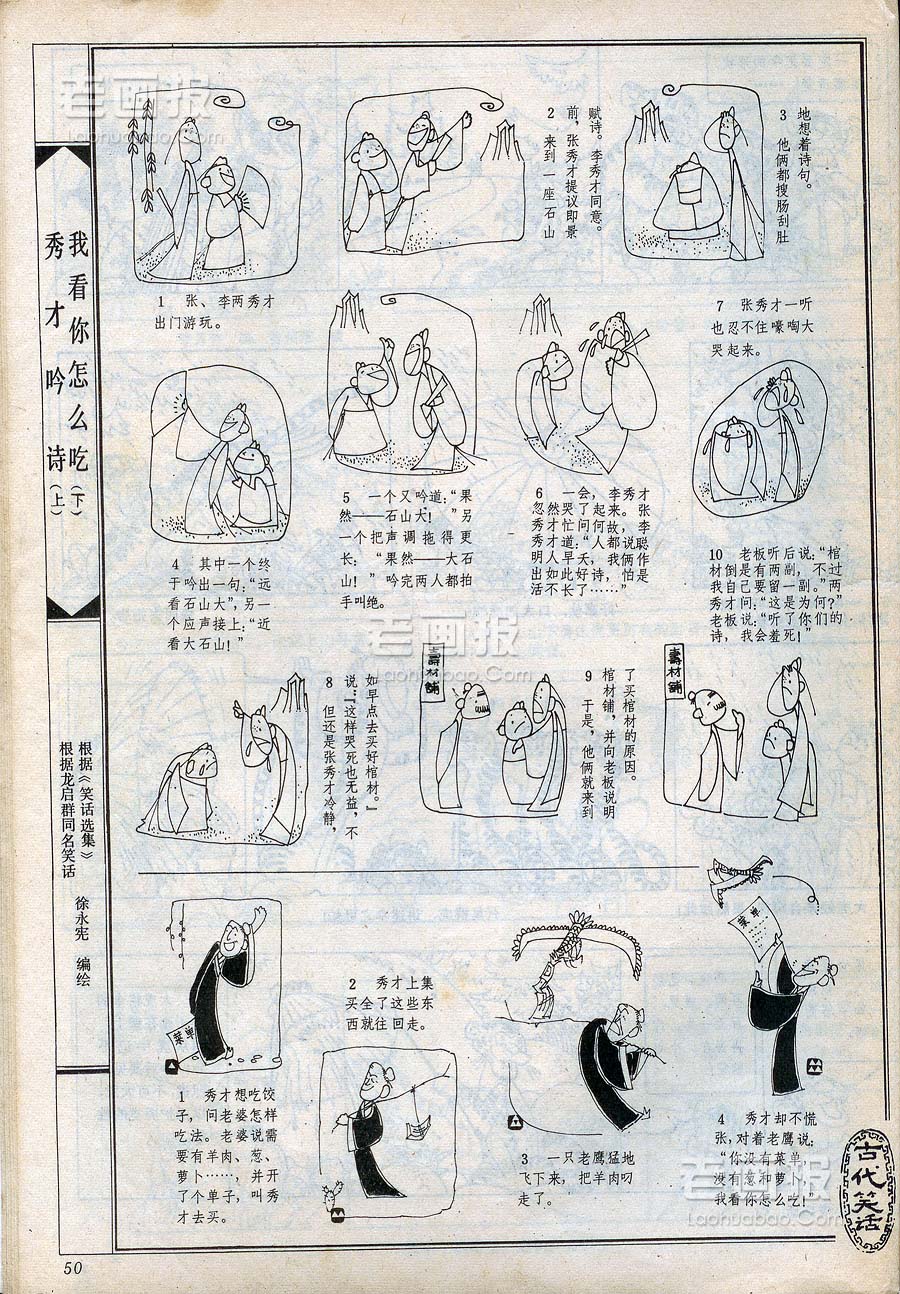 我看你怎么吃（下）
秀才吟诗（上）
根据《笑话选集》
根据龙启群同名笑话
徐永宪 编绘
1 张、李两秀才
出门游玩。
2 来到一座石山
前，张秀才提议即景
赋诗。李秀才同意。
3 他俩都搜肠刮肚
地想着诗句。
4 其中一个终
于吟出一句：“远
看石山大”，另一
个应声接上：“近
看大石山！”
5 一个又吟道：“果
然——石山大！”另
一个把声调拖得更
长：“果然——大石
山！”吟完两人都拍
手叫绝。
6 一会，李秀才
忽然哭了起来。张
秀才忙问何故，李
秀才道：“人都说聪
明人早夭，我俩作
出如此好诗，怕是
活不长了……”
7 张秀才一听
也忍不住嚎啕大
哭起来。
8 但还是张秀才冷静，
说：“这样哭死也无益，不
如早点去买好棺材。”
壽材舖
9 于是，他俩就来到
棺材铺，并向老板说明
了买棺材的原因。
壽材舖
10 老板听后说：“棺
材倒是有两副，不过
我自己要留一副。”两
秀才问：“这是为何？”
老板说：“听了你们的
诗，我会羞死！”
菜单
1 秀才想吃饺
子，问老婆怎样
吃法。老婆说需
要有羊肉、葱、
萝卜……，并开
了个单子，叫秀
才去买。
2 秀才上集
买全了这些东
西就往回走。
3 一只老鹰猛地
飞下来，把羊肉叼
走了。
菜单
4 秀才却不慌
张，对着老鹰说：
“你没有菜单，
没有葱和萝卜，
我看你怎么吃！”
古代笑话
50
老画报
Laohuabao.Com
老画报
Laohuabao.Com
老画报
Laohuabao.Com
老画报
Laohuabao.Com
老画报
Laohuabao.Com